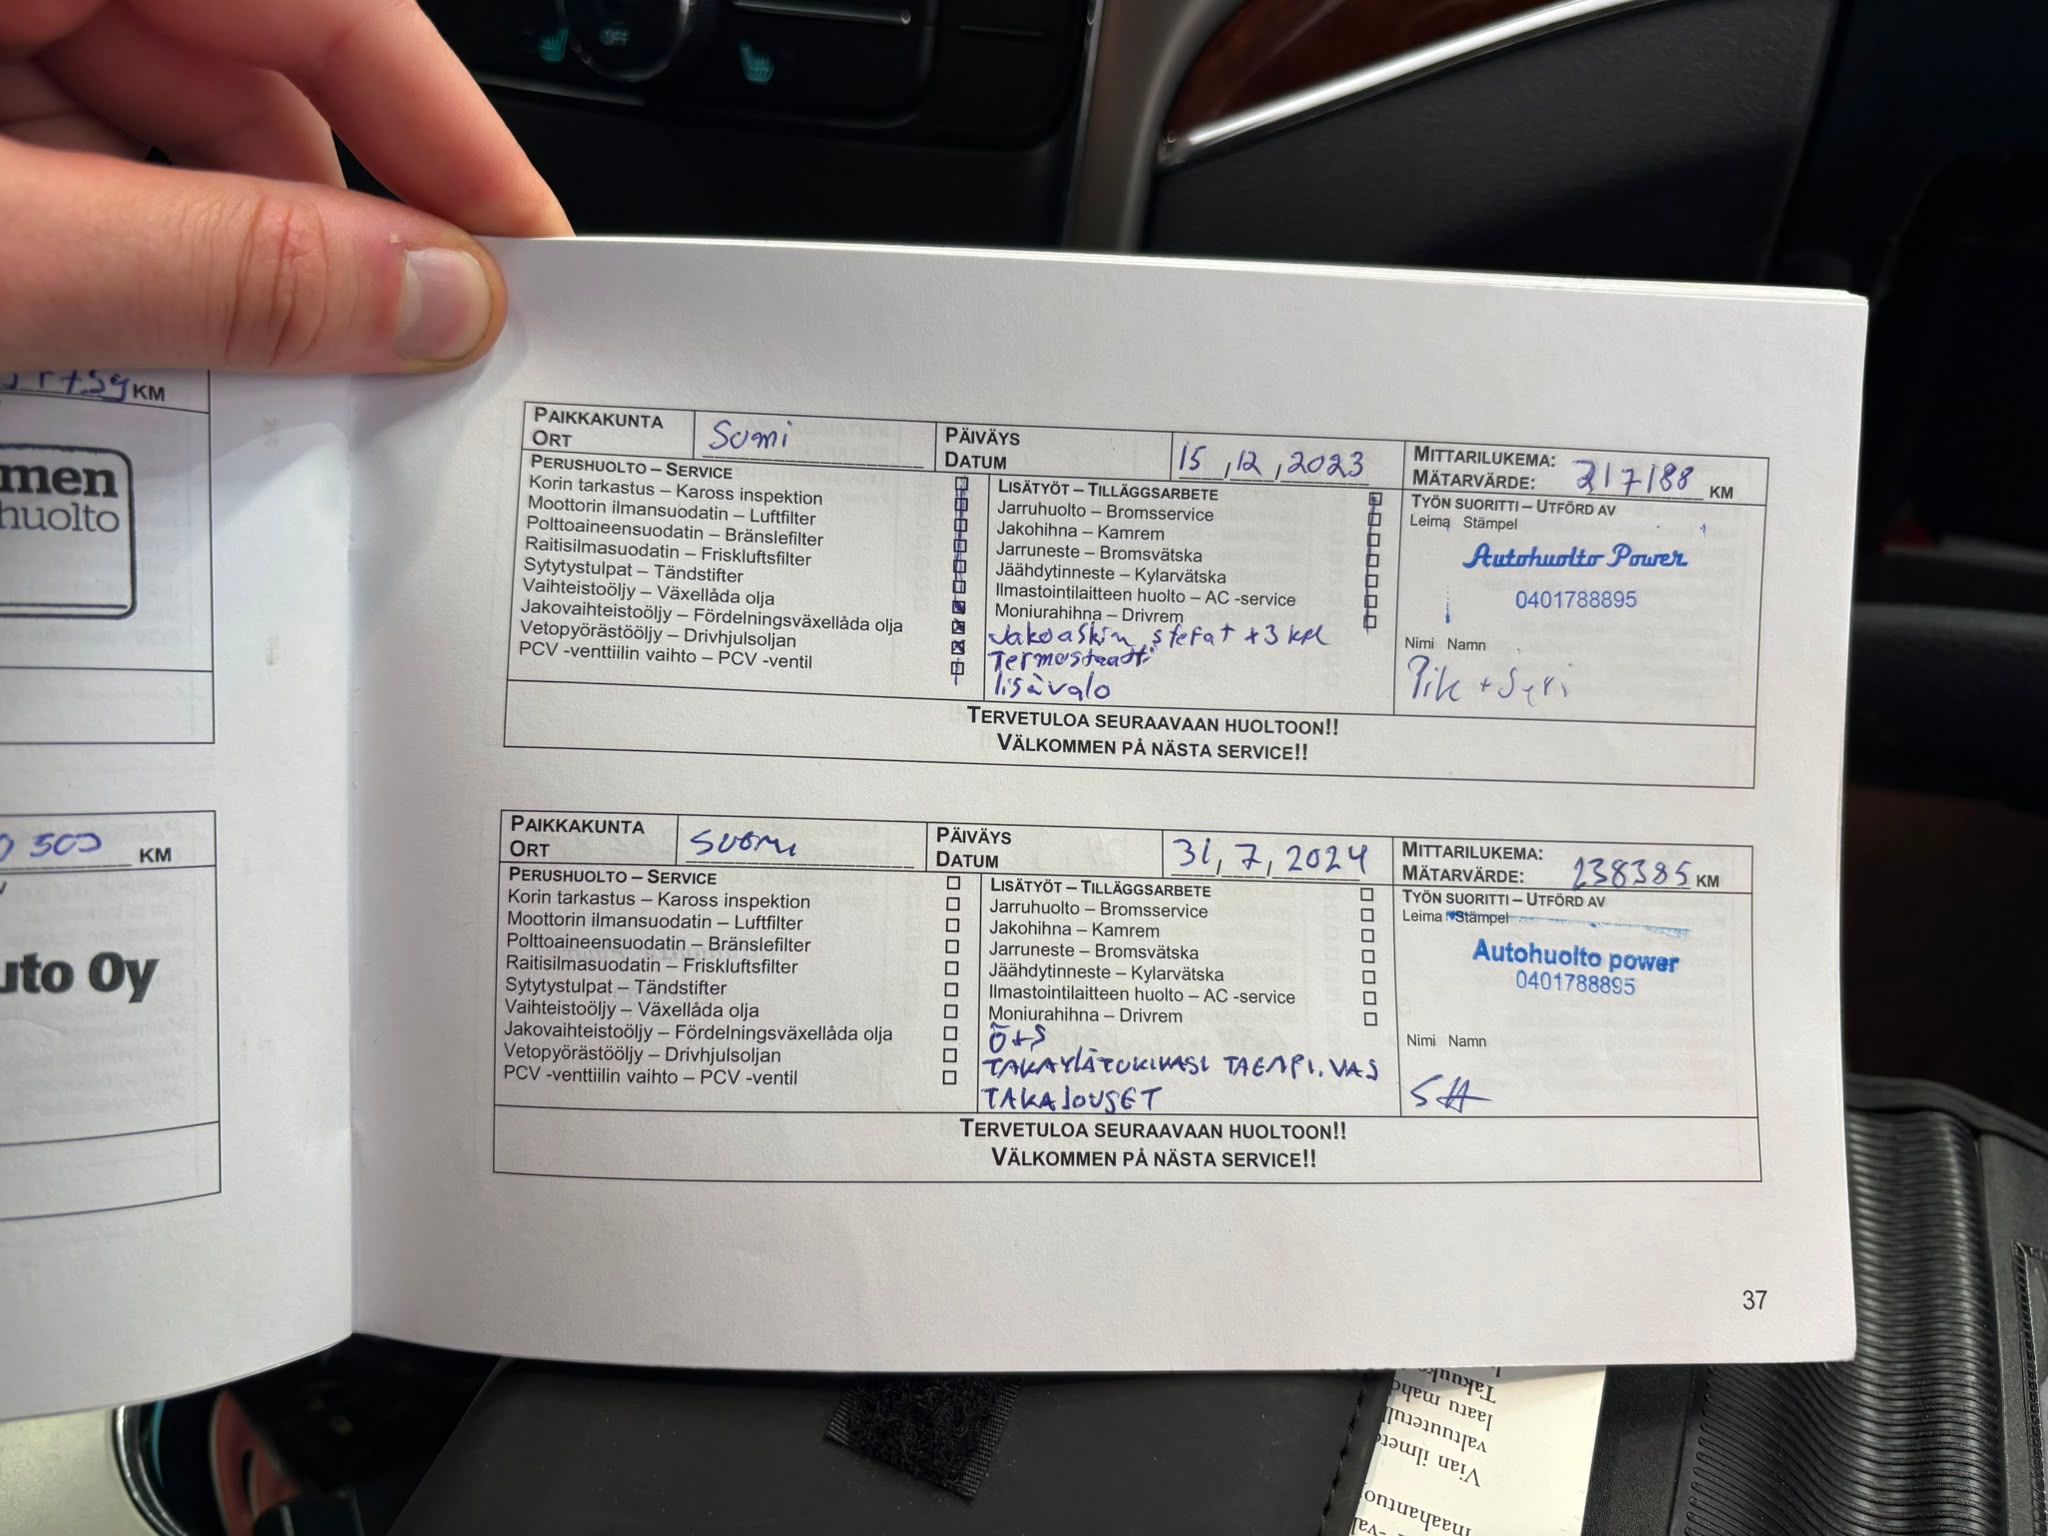 KM
men
huolto
500 KM
uto Oy
PAIKKAKUNTA
ORT
Suomi
PÄIVÄYS
DATUM
15,12,2023
MITTARILUKEMA:
MÄTARVÄRDE:
217188 KM
PERUSHUOLTO – SERVICE
Korin tarkastus – Kaross inspektion
Moottorin ilmansuodatin – Luftfilter
Polttoaineensuodatin – Bränslefilter
Raitisilmasuodatin – Friskluftsfilter
Sytytystulpat – Tändstifter
Vaihteistoöljy – Växellåda olja
Jakovaihteistoöljy – Fördelningsväxellåda olja
Vetopyörästööljy – Drivhjulsoljan
PCV -venttiilin vaihto – PCV -ventil
LISÄTYÖT – TILLÄGGSARBETE
Jarruhuolto – Bromsservice
Jakohihna – Kamrem
Jarruneste – Bromsvätska
Jäähdytinneste – Kylarvätska
Ilmastointilaitteen huolto – AC -service
Moniurahihna – Drivrem
Jakoaskin stefat x3 kpl
Termostaatti
lisävalo
TYÖN SUORITTI – UTFÖRD AV
Leima Stämpel
Autohuolto Power
0401788895
Nimi Namn
TERVETULOA SEURAAVAAN HUOLTOON!!
VÄLKOMMEN PÅ NÄSTA SERVICE!!
PAIKKAKUNTA
ORT
Suomi
PÄIVÄYS
DATUM
31,7,2024
MITTARILUKEMA:
MÄTARVÄRDE:
238385 KM
PERUSHUOLTO – SERVICE
Korin tarkastus – Kaross inspektion
Moottorin ilmansuodatin – Luftfilter
Polttoaineensuodatin – Bränslefilter
Raitisilmasuodatin – Friskluftsfilter
Sytytystulpat – Tändstifter
Vaihteistoöljy – Växellåda olja
Jakovaihteistoöljy – Fördelningsväxellåda olja
Vetopyörästööljy – Drivhjulsoljan
PCV -venttiilin vaihto – PCV -ventil
LISÄTYÖT – TILLÄGGSARBETE
Jarruhuolto – Bromsservice
Jakohihna – Kamrem
Jarruneste – Bromsvätska
Jäähdytinneste – Kylarvätska
Ilmastointilaitteen huolto – AC -service
Moniurahihna – Drivrem
Ö+S
TAKAYLÄTUKIVARSI TAEMPI.VAS
TAKAJOUSET
TYÖN SUORITTI – UTFÖRD AV
Leima Stämpel
Autohuolto power
0401788895
Nimi Namn
SH
TERVETULOA SEURAAVAAN HUOLTOON!!
VÄLKOMMEN PÅ NÄSTA SERVICE!!
37
OFF
laatu
Vian